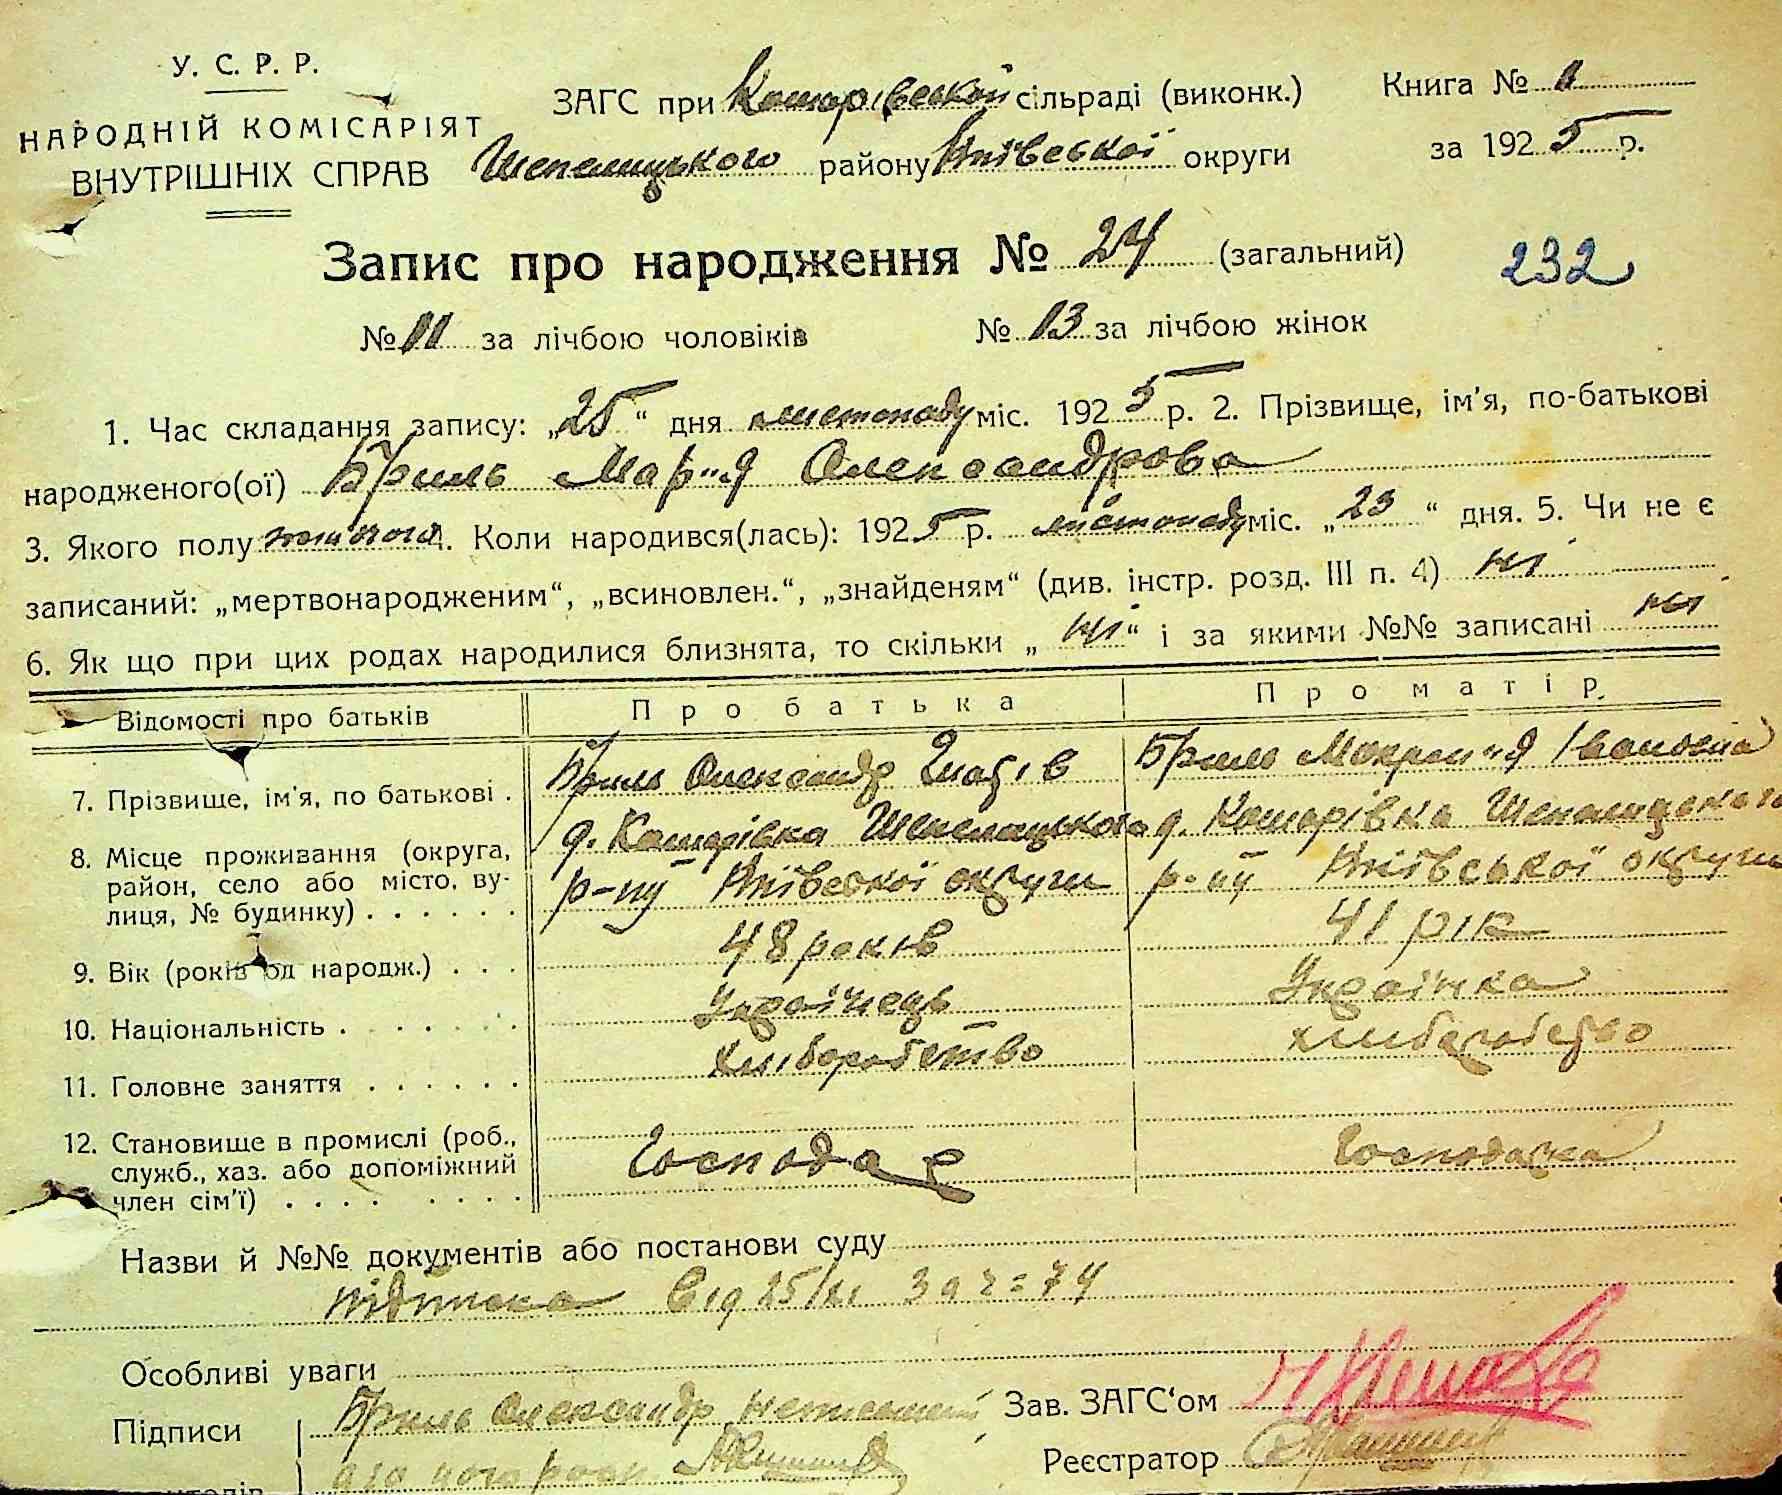 У. С. Р. Р.
НАРОДНІЙ КОМІСАРІЯТ
ВНУТРІШНІХ СПРАВ
ЗАГС при Кошарівській сільраді (виконк.)
Шепелицького району Київської округи
Книга № 1
за 1925 р.
Запис про народження № 24 (загальний)
232
№ 11 за лічбою чоловіків № 13 за лічбою жінок
1. Час складання запису: „25“ дня листопаду міс. 1925 р. 2. Прізвище, ім'я, по-батькові
народженого(ої) Бриль Марія Олександрова
3. Якого полу жіночого. Коли народився(лась): 1925 р. листопаду міс. „23“ дня. 5. Чи не є
записаний: „мертвонародженим“, „всиновлен.“, „знайденям“ (див. інстр. розд. III п. 4) ні
6. Як що при цих родах народилися близнята, то скільки „ні“ і за якими №№ записані ні
Відомості про батьків Про батька Про матір
7. Прізвище, ім'я, по батькові . Бриль Олександр Гнатів Бриль Мокрина Іванівна
8. Місце проживання (округа, район, село або місто, вулиця, № будинку) . . . . . .
д. Кошарівка Шепелицького д. Кошарівка Шепелицького
р-ну Київської округи р-ну Київської округи
9. Вік (років од народж.) . . . 48 років 41 рік
10. Національність . . . . . . Українець Українка
11. Головне заняття . . . . . . хліборобство хліборобство
12. Становище в промислі (роб., служб., хаз. або допоміжний член сім'ї) . . . . . . . .
Господар Господарка
Назви й №№ документів або постанови суду
підписка від 25/XI за № 74
Особливі уваги
Підписи Бриль Олександр неписьмений
Зав. ЗАГС‘ом
Реєстратор